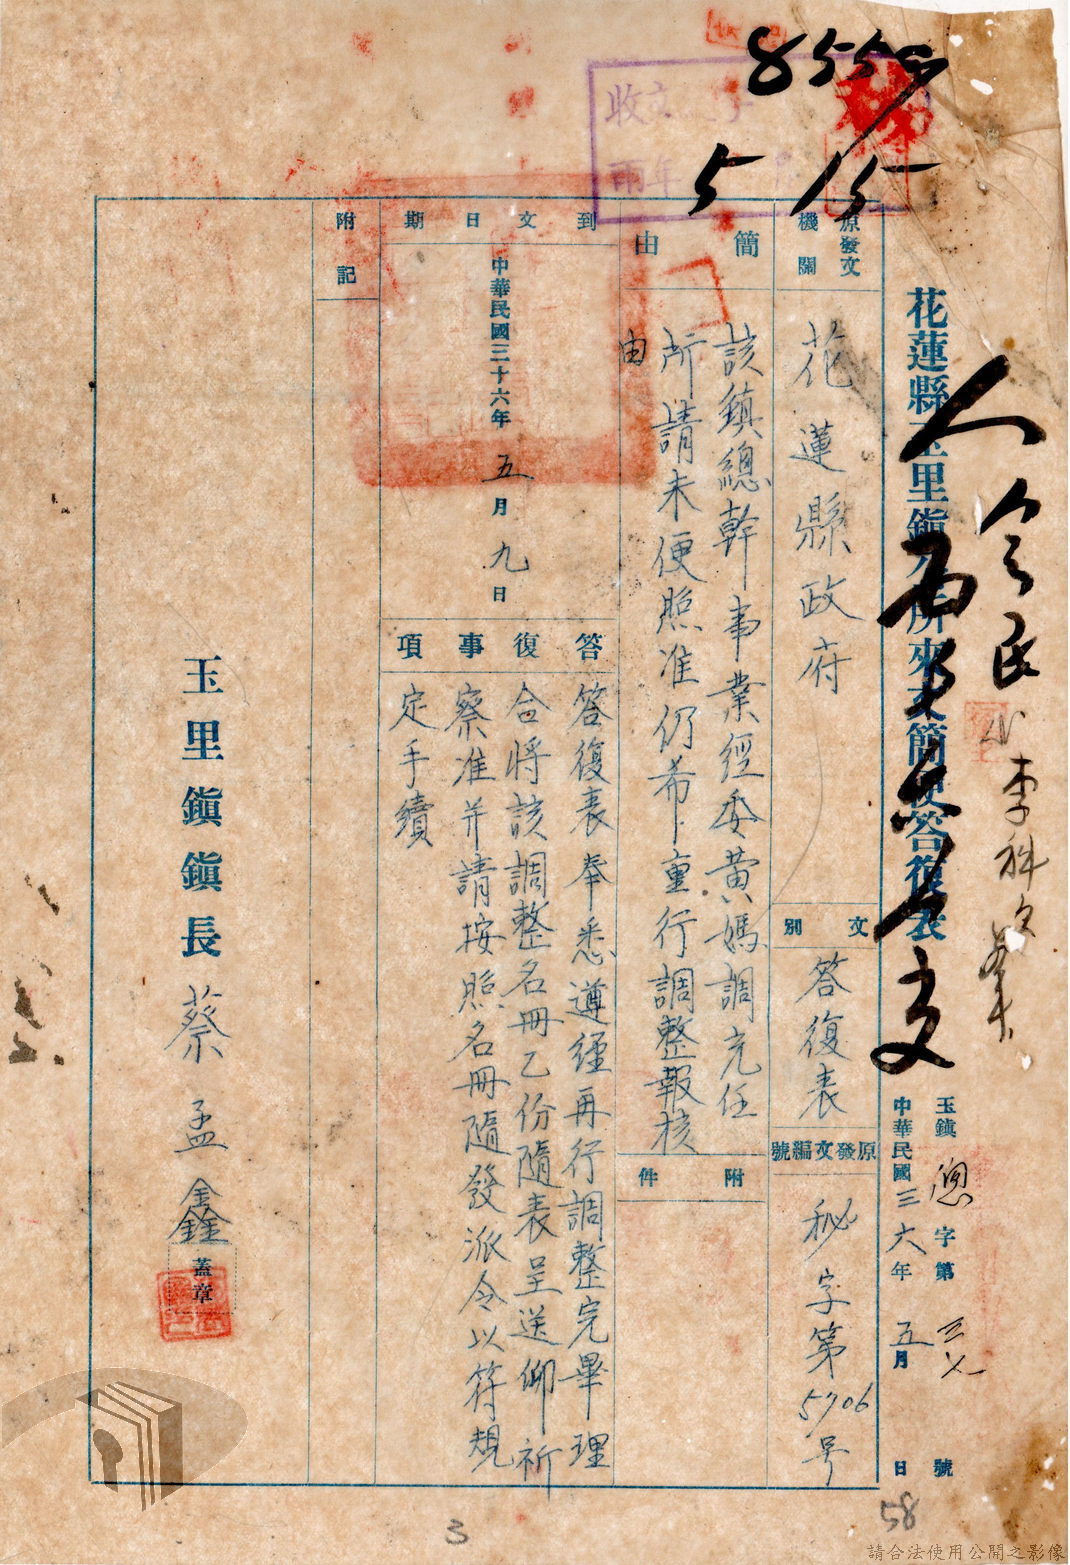 8559
收文 字
年
5 15
花蓮縣玉里鎮公所來文簡便答復表
玉鎮總字第 號
中華民國三六年五月 日
李科
原發文機關
花蓮縣政府
文別
答復表
原發文編號
秘字第5706号
簡由
該鎮總幹事業經委黃媽調充任
所請未便照准仍希重行調整報核
由
附件
到文日期
中華民國三十六年五月九日
答復事項
答復表奉悉遵經再行調整完畢理
合將該調整名冊乙份隨表呈送仰祈
察准并請按照名冊隨發派令以符規
定手續
附記
玉里鎮鎮長蔡孟鑫
蓋章
58
3
請合法使用公開之影像